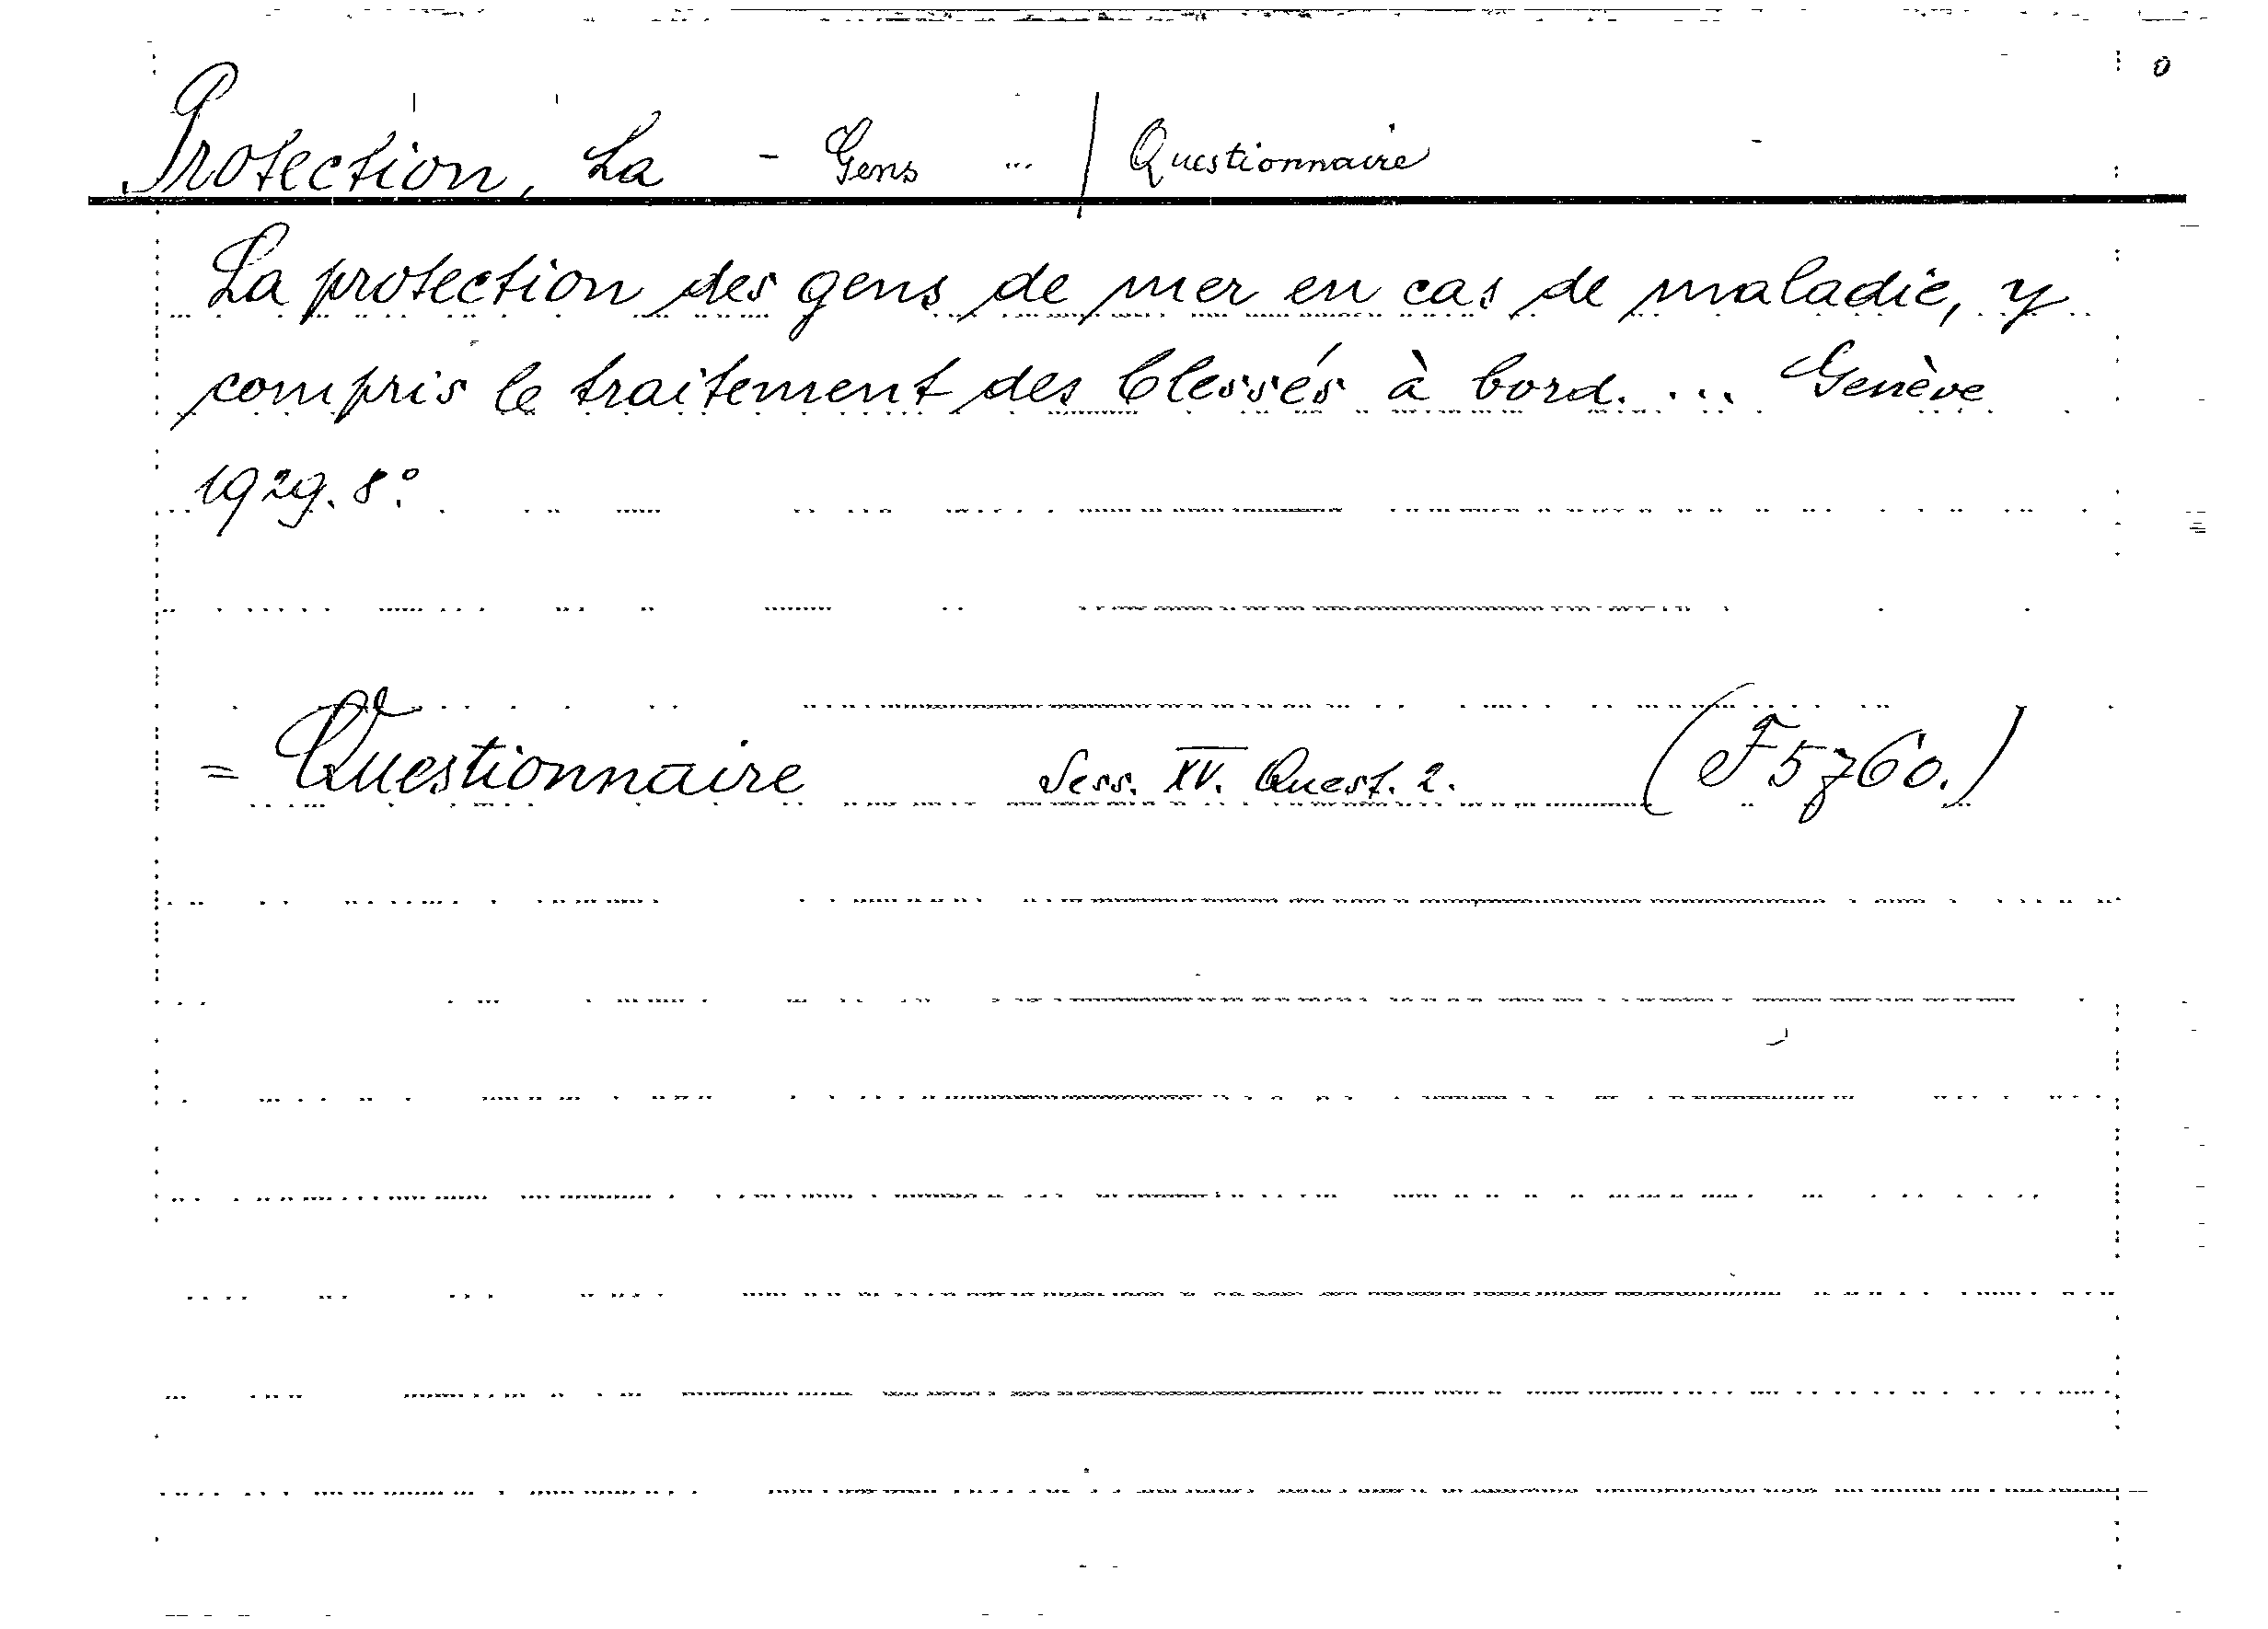 Protection, La - Gens ... / Questionnaire
La protection des gens de mer en cas de maladie, y
compris le traitement des blessés à bord. ... Genève
1929. 8°.
= Questionnaire Sess. XV. Quest. 2. (F 5760.)